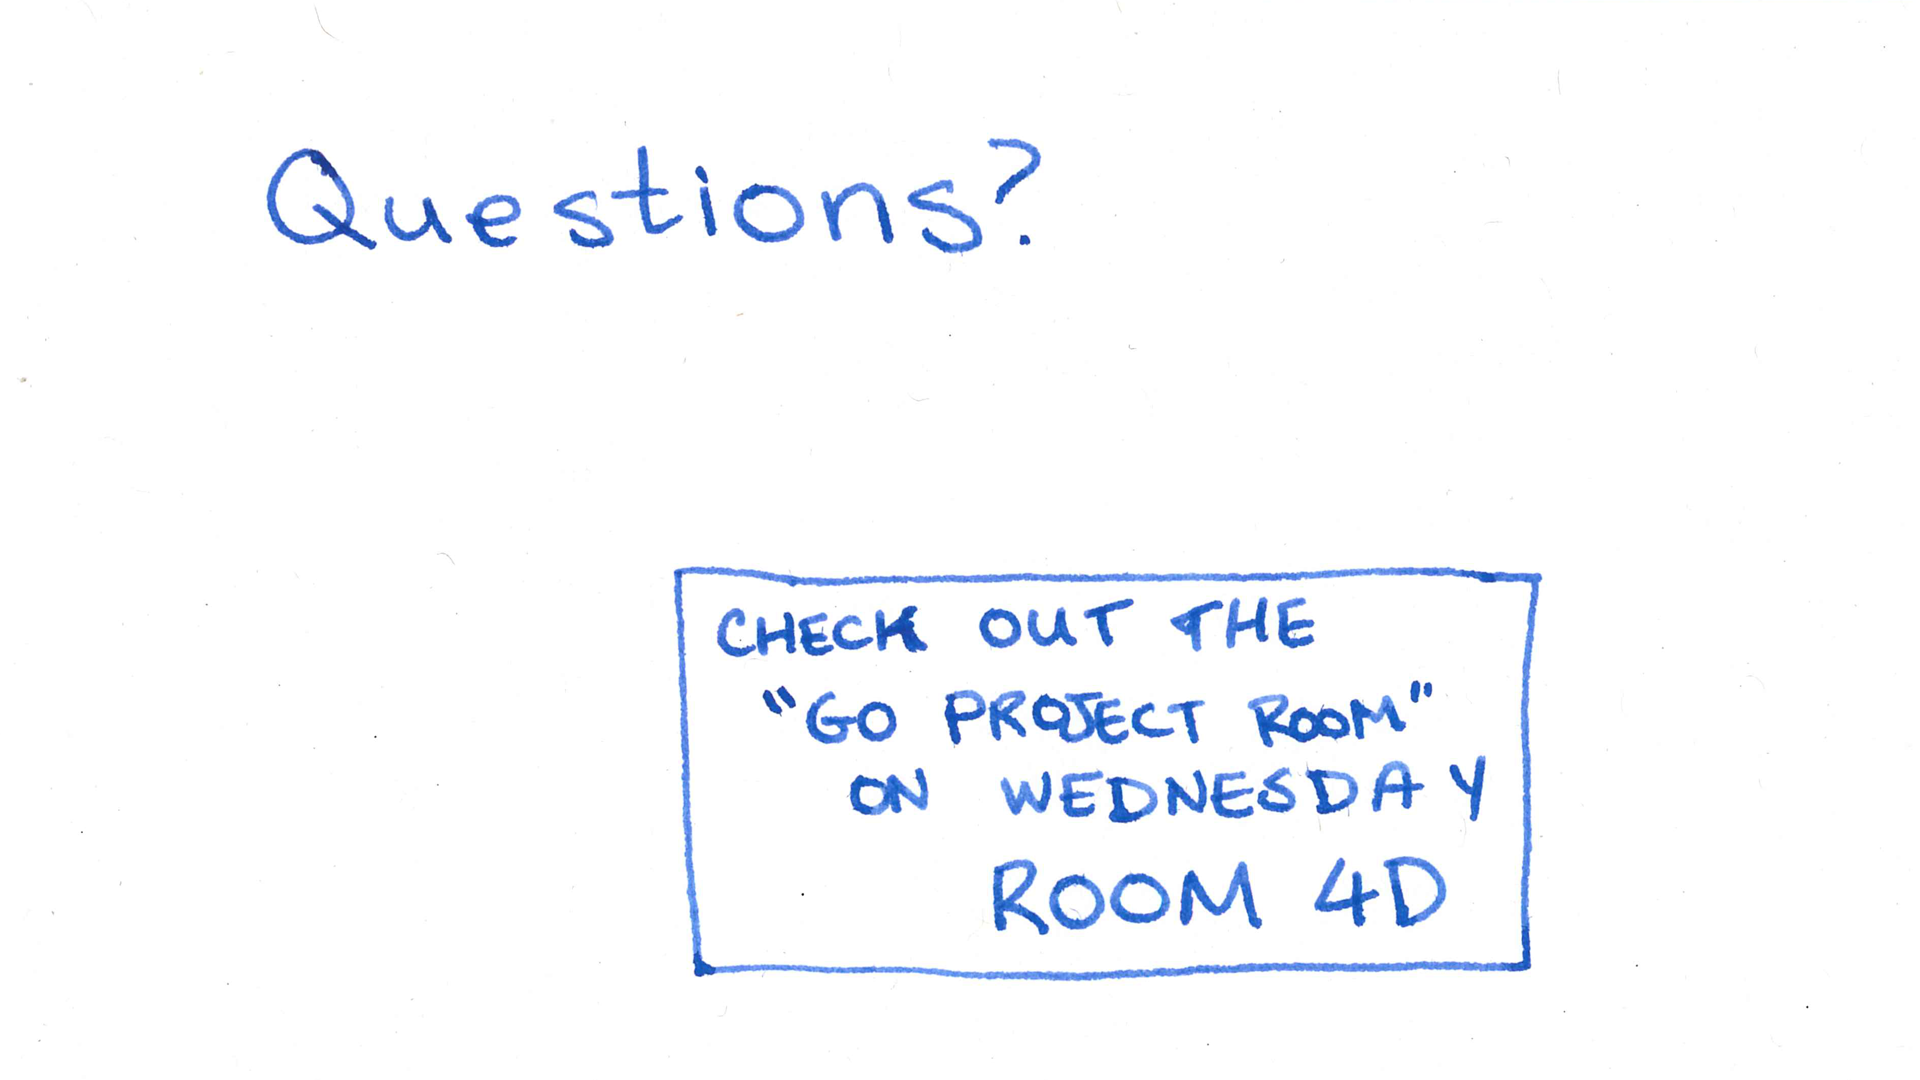 Questions?
CHECK OUT THE
"GO PROJECT ROOM"
ON WEDNESDAY
ROOM 4D